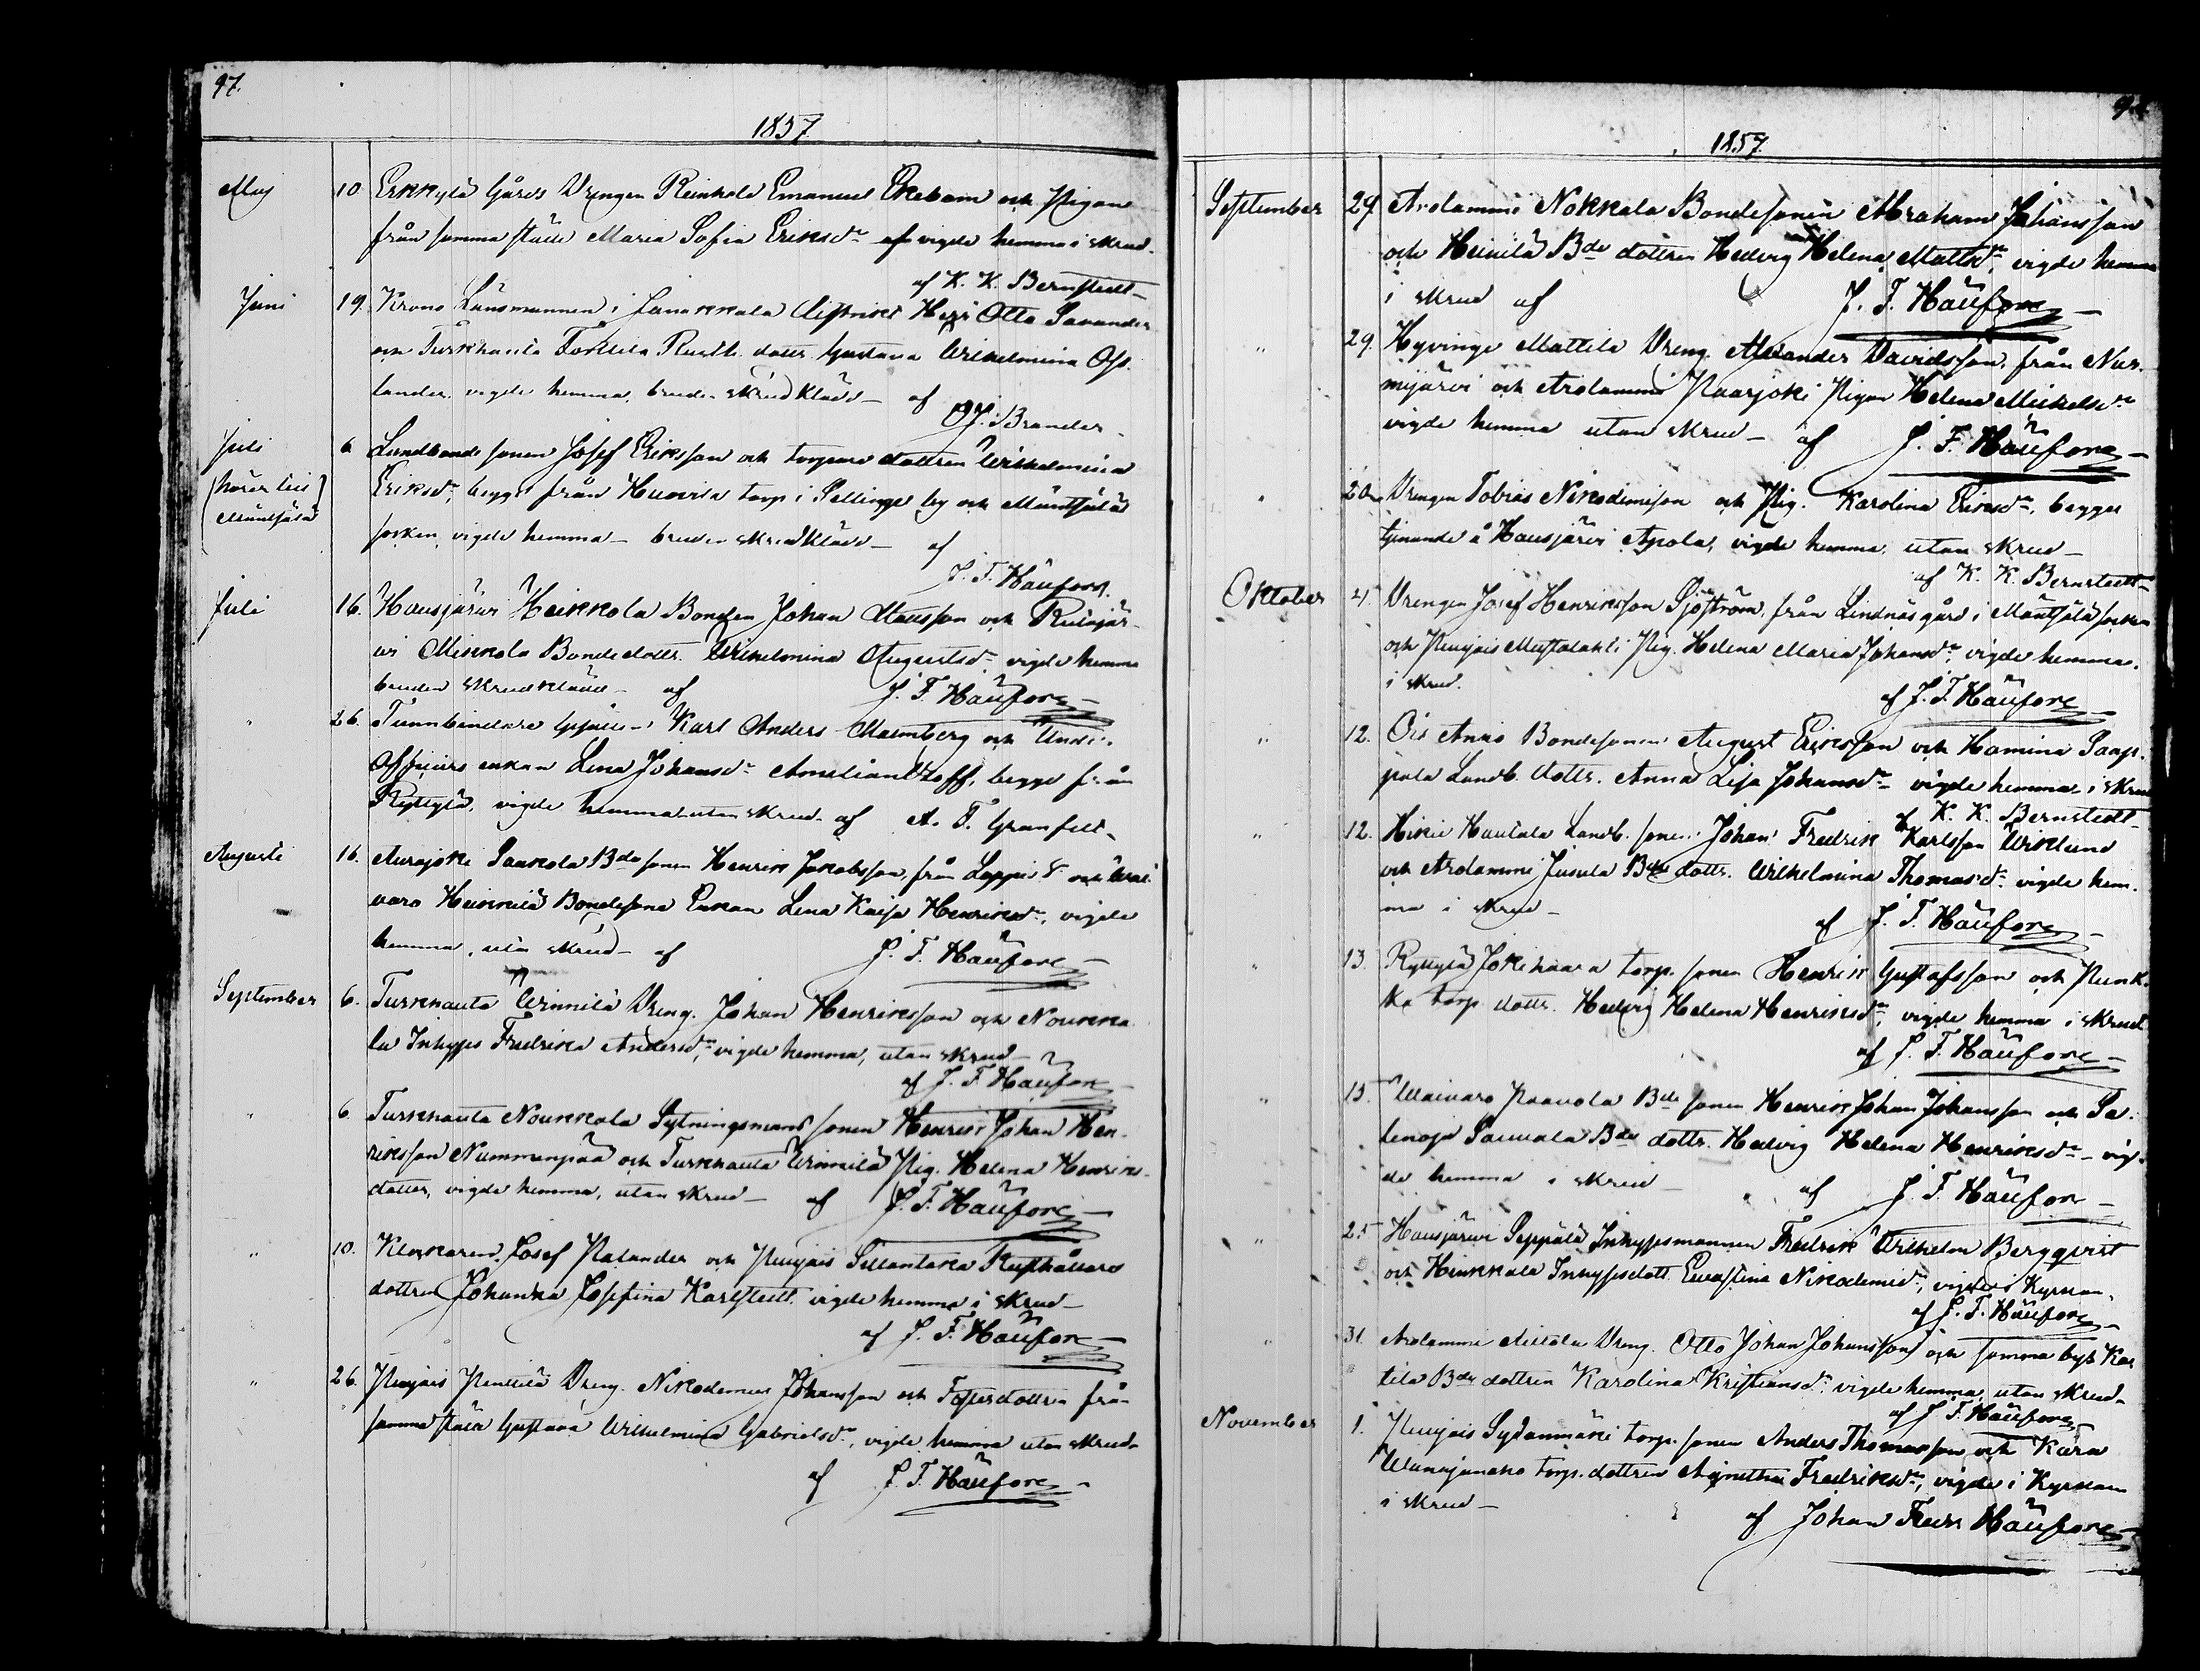 97.
1857.
Maj 10 Erkkylä Gårds Drengen Reinhold Emanuel Ekebom och Pigan
från samma ställe Maria Sofia Eriksdr vigde hemma i skrud.
af K. K. Bernstedt
Juni 19. Krono Länsmannen i Janakkala District Herr Otto Savander
och Turkhauta Rusth. dottr. Gustava Wilhelmina
lander, vigde hemma, bruden skrudklädd af
Brander
Juli 6 Landbonde sonen Josef Eriksson och torpare dottren Wilhelmina
(hörer till Mäntsälä) Eriksdr, begge från Huovila torp i Sellinge by och Mäntsälä
socken, vigde hemma bruden skrudklädd af
J. F. Häufore.
Juli 16. Hausjärvi Heikkola Bonden Johan Mattsson och
Mikkola Bonde dottr. Wilhelmina Augustsdr vigde hemma
bruden skrudklädd af J. F. Häufore
" 26. Tunnbindare Karl Anders Malmberg och Under
Officers enkan Lena Johansdr begge från
Ryttylä, vigde hemma utan skrud af A. F. Granfelt
Augusti 16. Aurajoki B.de sonen Henrik Jakobsson, från Loppis och Wäi
varo Heikkilä Bondesone Enkan Lena Kaisa Henriksdr, vigde
hemma, utan skrud af J. F. Häufore
September 6. Turkhauta Winnilä Dreng. Johan Henriksson och Noukka
la Inhyses Fredrika Andersdr, vigde hemma, utan skrud
af J. F. Häufore
" 6 Turkhauta Noukkala Sytningsmans sonen Henrik Johan Hen-
riksson Nummenpää och Turkhauta Winnilä Pig. Helena Henriks-
dotter, vigde hemma, utan skrud af J. F. Häufore
" 10. Klockaren Josef Palander och Puujais Sillantaka Rusthållare
dottren Johanna Josefina Karlstedt vigde hemma i skrud
af J. F. Häufore
" 26. Puujais Penttilä Dreng. Nikodemus Johansson och Fosterdottren från
samma ställe Gustava Wilhelmina Gabrielsdr, vigde hemma utan skrud
af J. F. Häufore
1857.
September 29 Arolammi Nokkala Bondesonen Abraham Johansson
och Heikilä B.de dottren Hedvig Helena Mattsdr, vigde hemma
i skrud af J. F. Häufore
" 29. Hyvinge Mattila Dreng. Alexander Davidsson, från Nur-
mijärvi och Arolammi Paarjoki Pigan Helena Mickelsdr
vigde hemma utan skrud af J. F. Häufore
" 20. Drengen Tobias Nikodimison och Pig. Karolina Eriksdr, begge
tjenande å Hausjärvi Apola, vigde hemma, utan skrud
af K. K. Bernstedt
Oktober 4. Drengen Josef Henriksson Sjöström, från Lindnäs gård i Mäntsälä socken
och Puujais Mustalahti Pig. Helena Maria Johansdr, vigde hemma,
i skrud.
af J. F. Häufore
" 12. Ois Anno Bondesonen August Eriksson och Hamina Saap-
pala Landb. dottr. Anna Lisa Johansdr vigde hemma i skrud
af K. K. Bernstedt
" 12. Hikiä Hautala Landb. sonen Johan Fredrik Karlsson Wiklund
och Arolammi Jusula B.de dottr. Wilhelmina Thomasdr vigde hem-
ma i skrud
af J. F. Häufore
" 13. Ryttylä Jokihaara torp. sonen Henrik Gustafsson och Punk-
ka torp. dottr. Hedvig Helena Henriksdr, vigde hemma i skrud
af J. F. Häufore
" 15. Waivaro Paavola B.de sonen Henrik Johan Johansson och Se-
lenoja Sauvala B.de dottr. Hedvig Helena Henriksdr vig-
de hemma i skrud af J. F. Häufore
" 25 Hausjärvi Seppälä Inhysesmannen Fredrik Wilhelm Bergqvist
och Heikkala Inhysesdott. Evastina Nikodemidr, vigde i Kyrkan,
af J. F. Häufore
" 31. Arolammi Aittola Dreng. Otto Johan Johansson och samma bys Kar
tila B.de dottren Karolina Kristiansdr vigde hemma, utan skrud
af J. F. Häufore
November 1. Puujais Sydänmäki torp. sonen Anders Thomasson och Kara
torp. dottren Agnetha Fredriksdr, vigde i Kyrkan
i skrud
af Johan Fredr Häufore